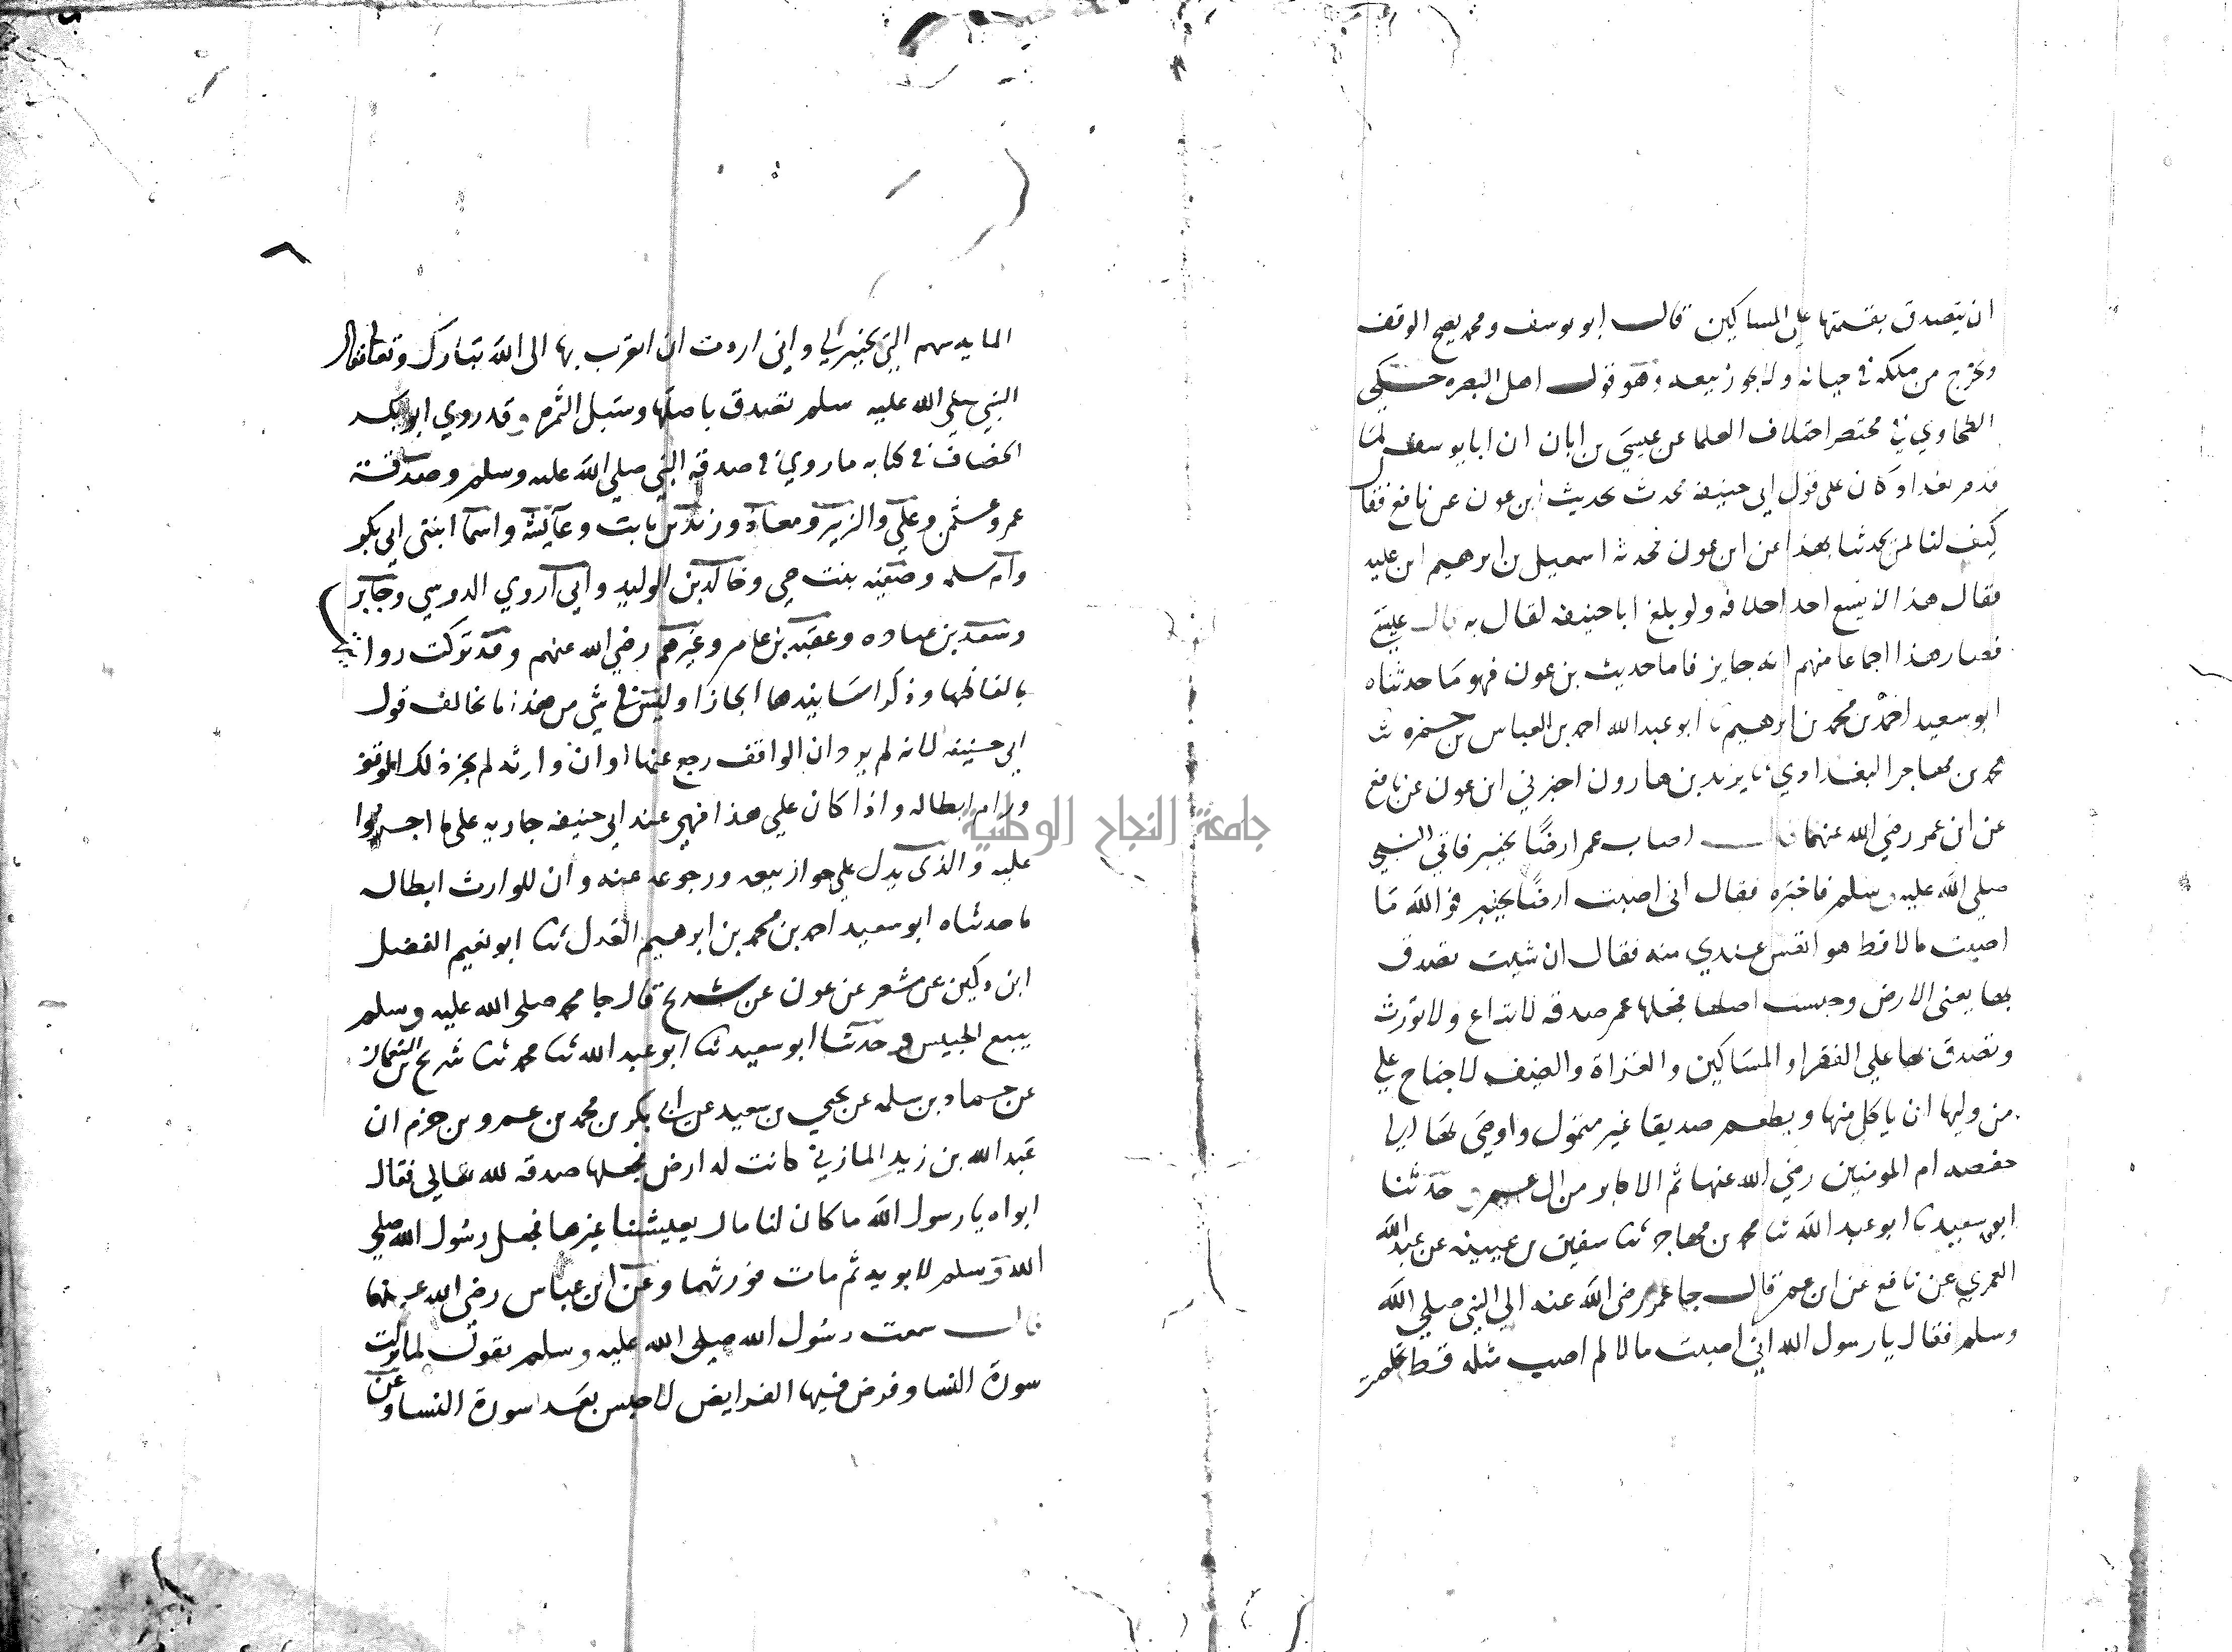 ان يتصدق بقيمتها على المساكين قال ابو يوسف ومحمد يصح الوقف
ويخرج من ملكه في حياته ولا يجوز بيعه وهو قول اهل البصره حكى
الطحاوي في مختصر اختلاف العلما عن عيسى بن ابان ان ابا يوسف لما
قدم بغداد كان على قول ابي حنيفه فحدث بحديث ابن عون عن نافع فقال
كيف لنا لمن يحدثنا بهذا عن ابن عون فحدثه اسمعيل بن ابرهيم ابن عليه
فقال هذا لا يسع احد اخلافه ولو بلغ ابا حنيفه لقال به قال عيسى
فصار هذا اجماعا منهم انه جايز فاما حديث بن عون فهو ما حدثناه
ابو سعيد احمد بن محمد بن ابرهيم نا ابو عبد الله احمد بن العباس بن حمزه ثنا
محمد بن مهاجر البغدادي نا يزيد بن هارون اخبرني ابن عون عن نافع
عن ابن عمر رضي الله عنهما قال اصاب عمر ارضًا بخيبر فاتى النبي
صلى الله عليه وسلم فاخبره فقال انى اصبت ارضًا بخيبر فو الله ما
اصبت مالا قط هو انفس عندي منه فقال ان شيت تصدق
بها يعنى الارض وحبست اصلها فجعلها عمر صدقه لا تباع ولا تورث
وتصدق بها علي الفقرا والمساكين والغزاة والضيف لا جناح على
من وليها ان ياكل منها ويطعم صديقا غير متمول واوصى بها الى
حفصه ام المومنين رضي الله عنها ثم الاكابر من ال عمر حدثنا
ابو سعيد نا ابو عبد الله ثنا محمد بن مهاجر ثنا سفين بن عيينه عن عبد الله
العمري عن نافع عن ابن عمر قال جا عمر رضى الله عنه الي النبي صلي الله
وسلم فقال يا رسول الله اني اصبت مالا لم اصب مثله قط
الما يه سهم التي بخيبر لي واني اردت ان اتقرب بها الى الله تبارك وتعالى فقال
النبي صلى الله عليه سلم تصدق باصلها وسبل الثمره وقد روي ابو بكر
الخصاف في كتابه ما روي في صدقه النبي صلي الله عليه وسلم وصدقة
عمر وعثمن وعلي والزبير ومعاذ وزيد بن ثابت وعآيشه واسما ابنتى ابي بكر
وام سلمه وصفيه بنت حيي وخالد بن الوليد وابي اروي الدوسي وجابر
وسعد بن عباده وعقبه بن عامر وغيرهم رضي الله عنهم وقد تركت رواتها
بالفاظها وذكر اسانيدها ايجازا وليس في شي من هذا ما يخالف قول
ابي حنيفه لانه لم يرو ان الواقف رجع عنها او ان وارثه لم يجز ذلك الموقف
ورام ابطاله واذا كان علي هذا فهي عند ابي حنيفه جاريه على ما اجروا
عليه والذى يدل علي جواز بيعه ورجوعه عنه وان للوارث ابطاله
ما حدثناه ابو سعيد احمد بن محمد بن ابرهيم العدل ثنا ابو نعيم الفضل
ابن دكين عن مسعر عن عون عن شريح قال جا محمد صلى الله عليه وسلم
ببيع الحبيس وحدثنا ابو سعيد ثنا ابو عبد الله ثنا محمد ثنا شريح بن النعمان
عن حماد بن سلمه عن يحيي بن سعيد عن ابى بكر بن محمد بن عمرو بن حزم ان
عبد الله بن زيد المازني كانت له ارض فجعلها صدقه لله تعالي فقال
ابواه يا رسول الله ما كان لنا مال يعيشنا غيرها فجعل رسول الله صلى
الله وسلم لابويه ثم مات فورثهما وعن ابن عباس رضي الله عنهما
قال سمعت رسول الله صلى الله عليه وسلم يقول لما نزلت
سورة النسا وفرض فيها الفرايض لا حبس بعد سورة النسا وعن
جامعة النجاح الوطنية